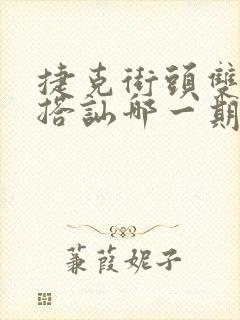 捷克街頭雙
搭訕哪一期
蒹葭妮子